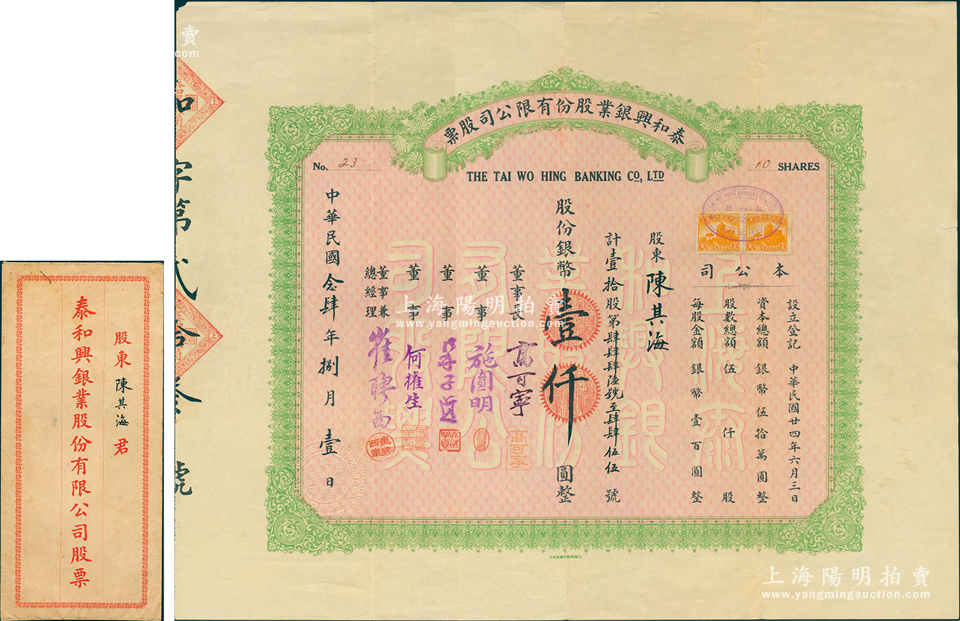 股東 陳其海 君
泰和興銀業股份有限公司股票
和字第弍拾叁號
泰和興銀業股份有限公司股票
No. 23
10 SHARES
THE TAI WO HING BANKING CO., LTD
本公司
設立登記 中華民國廿四年六月三日
資本總額 銀幣伍拾萬圓整
股數總額 伍仟股
每股金額 銀幣壹百圓整
股東 陳其海
計壹拾股第肆肆肆陸號至肆肆伍伍號
股份銀幣壹仟圓整
董事長 高可寧
董事 施圓明
董事
董事 何權生
董事兼總經理 崔聘西
中華民國念肆年捌月壹日
上海陽明拍賣
www.yangmingauction.com
上海陽明拍賣
www.yangmingauction.com